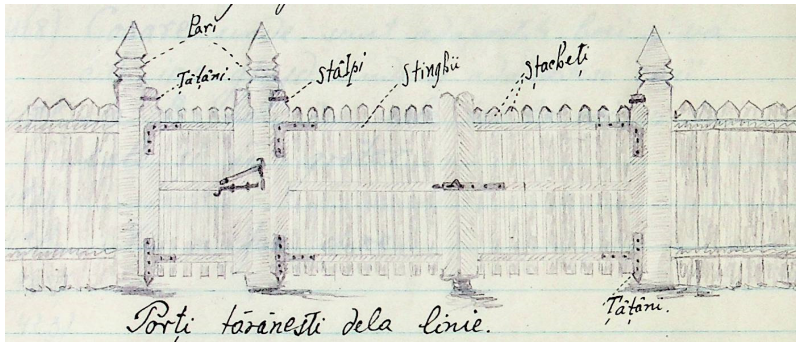 Pari
Țâțâni.
Stâlpi
Stinghii
Ștacheți
Țâțâni.
Porți țărănești dela linie.